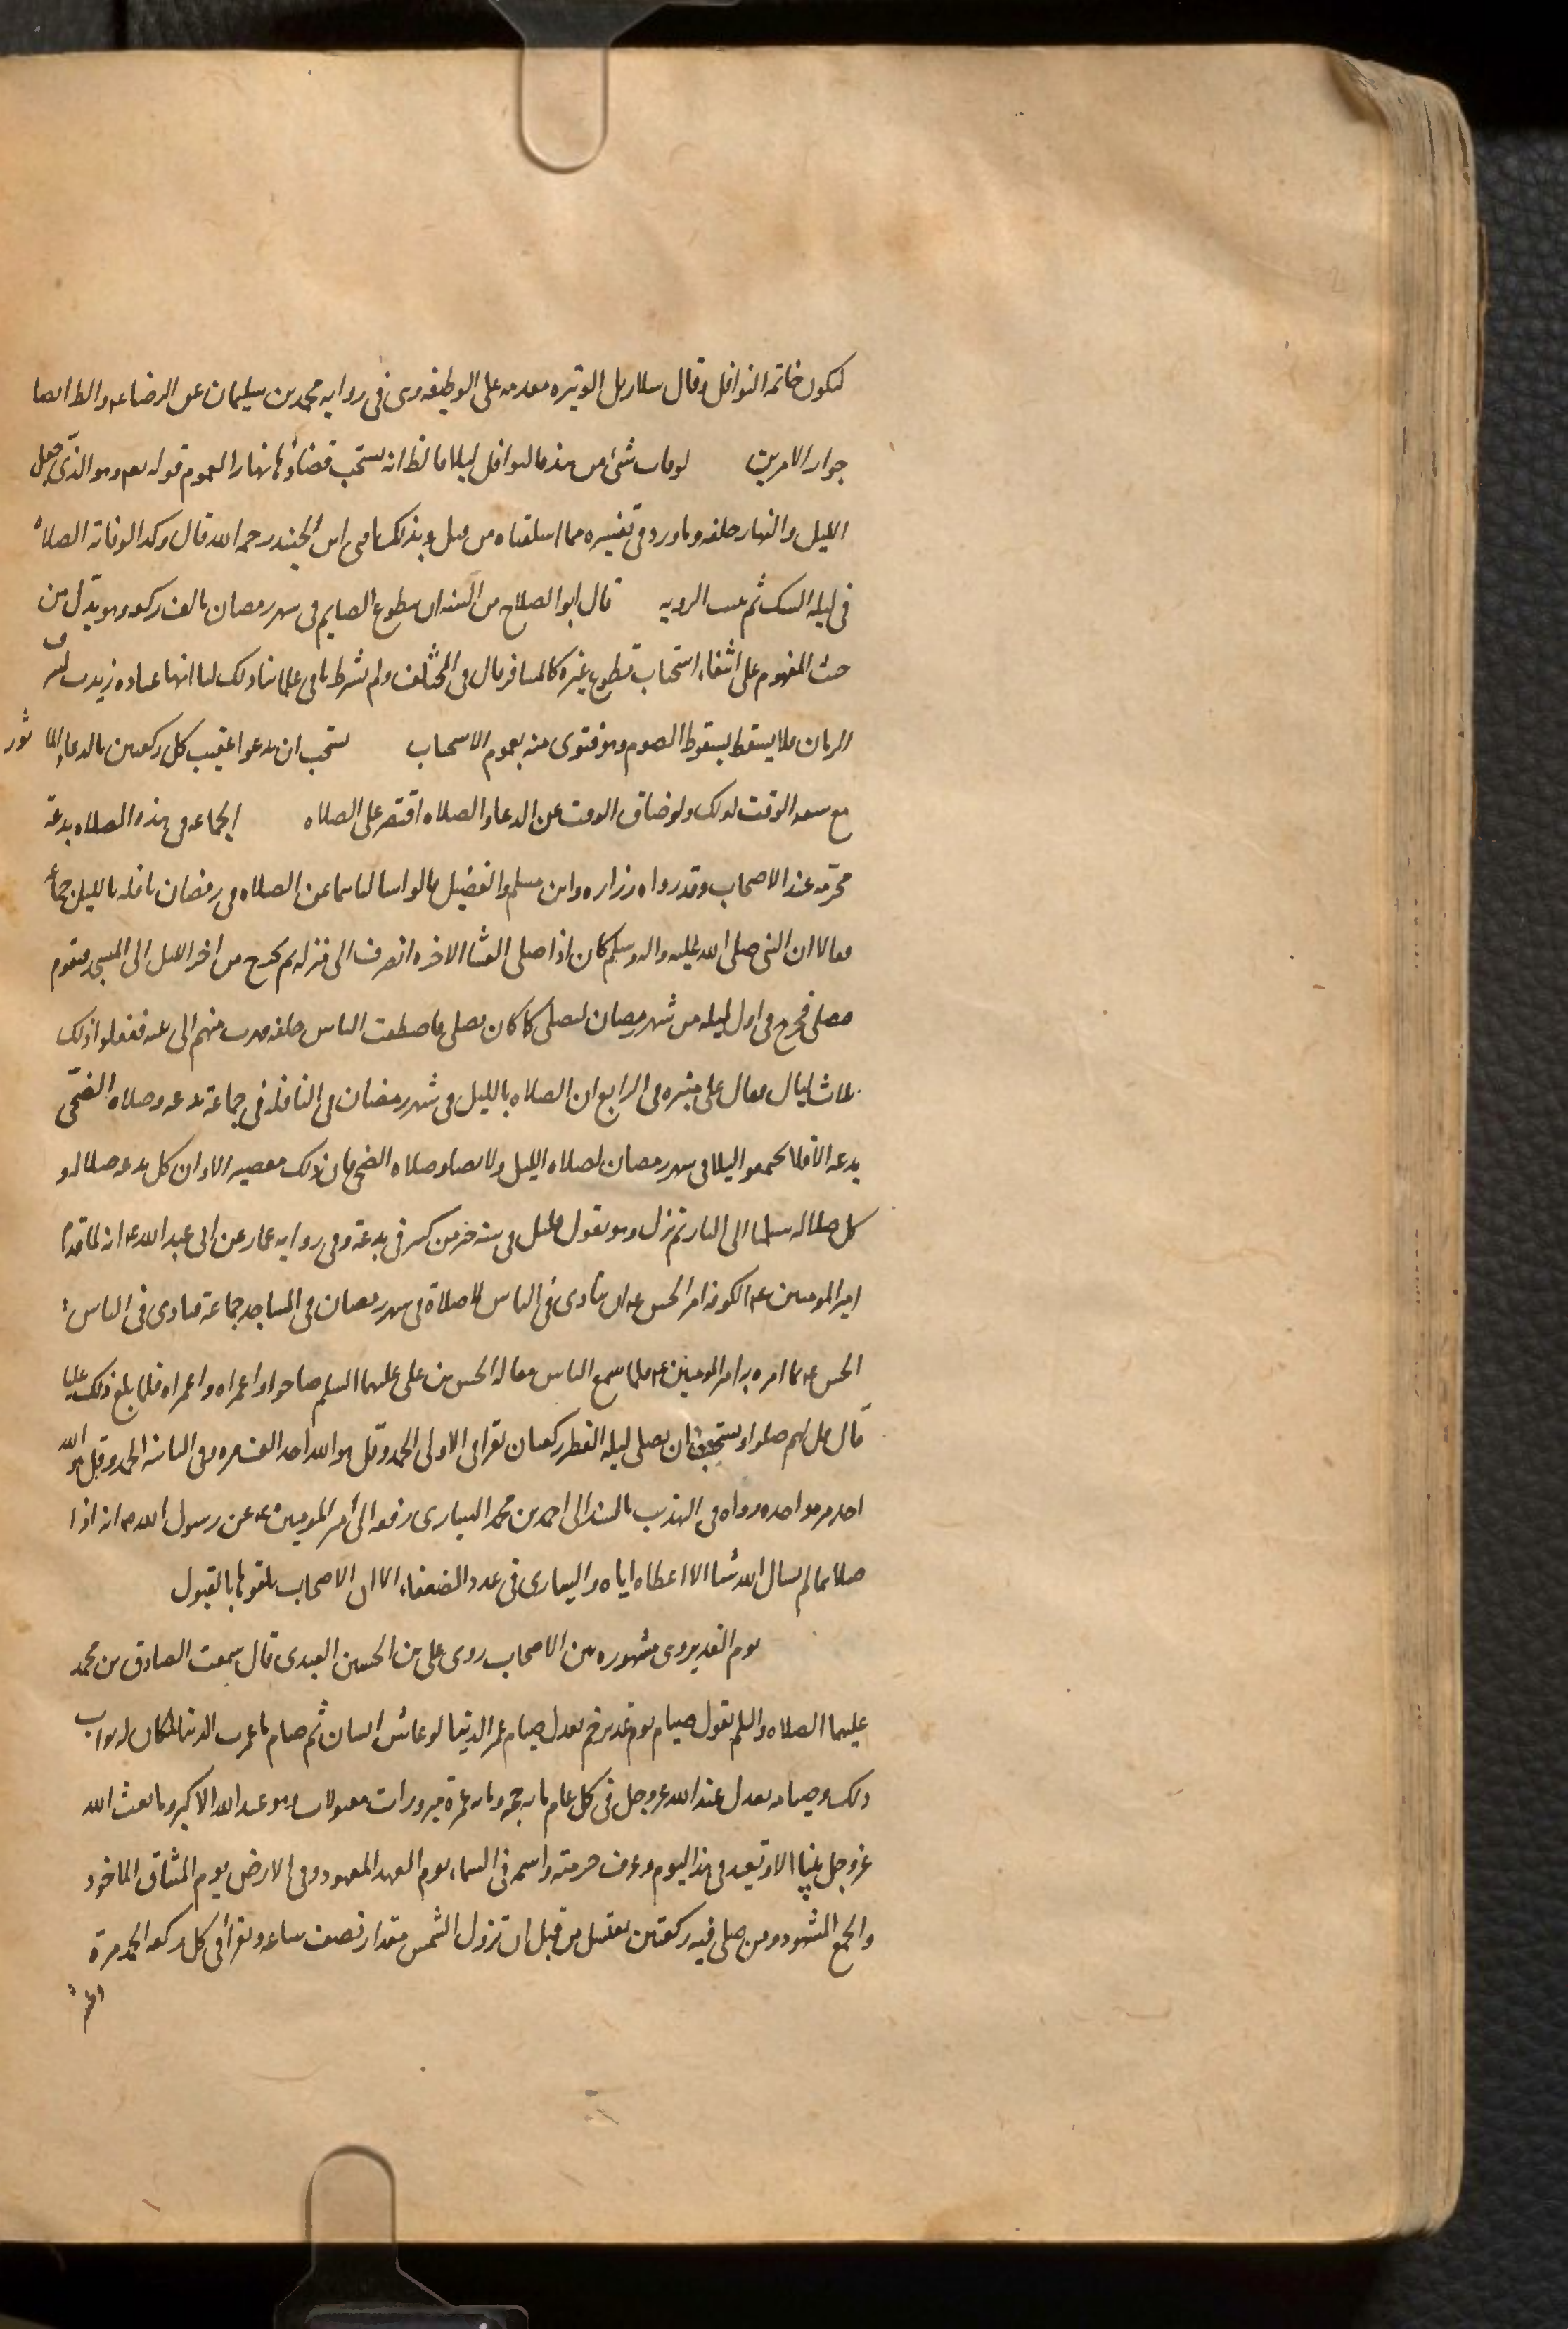 لتكون خاتمة النوافل وقال سلار بل الوتيره مقدمه على الوظيفه وهى فى روايه محمد بن سليمان عن الرضا عه والظ ايضا
جواز الامرين لو فات شئ من هذه النوافل ليلا فالظ انه يستحب قضاؤها نهارا لعموم قوله تعم وهو الذى جعل
الليل والنهار خلفه وما ورد فى تفسيره مما اسلفناه من قبل وبذلك افتى ابن الجنيد رحمه الله قال وكذا لو فاته الصلاه
فى ليله الشك ثم ثبت الرويه قال ابو الصلاح من السنه ان يتطوع الصايم فى شهر رمضان بالف ركعه وهو يدل من
حيث المفهوم على انتفاء استحباب تطوع غيره كالمسافر قال فى المختلف ولم يشرط باقى علمائنا ذلك لنا انها عباده زيدت لشرف
الزمان فلا يسقط بسقوط الصوم وهو فتوى منه بعموم الاستحباب يستحب ان يدعو عقيب كل ركعتين بالدعاء الماثور
مع سعه الوقت لذلك ولو ضاق الوقت عن الدعاء والصلاه اقتصر على الصلاه الجماعه فى هذه الصلاه بدعة
محرّمه عند الاصحاب وقد رواه زراره وابن مسلم والفضيل قالوا سالناهما عن الصلاه فى رمضان نافله بالليل جماعة
فقالا ان النبى صلى الله عليه واله وسلم كان اذا صلى العشا الاخره انصرف الى منزله ثم يخرج من اخر الليل الى المسجد فيقوم
فيصلى فخرج فى اول ليله من شهر رمضان ليصلى كما كان يصلى فاصطفت الناس خلفه فهرب منهم الى بيته ففعلوا ذلك
ثلاث ليال فقال على منبره فى الرابع ان الصلاه بالليل فى شهر رمضان فى النافله فى جماعة بدعه وصلاه الضحى
بدعه الا فلا تجتمعوا ليلا فى شهر رمضان لصلاه الليل ولا تصلوا صلاه الضحى فان ذلك معصيه الا وان كل بدعه ضلاله و
كل ضلاله سبيلها الى النار ثم نزل وهو يقول قليل فى سنه خير من كثير فى بدعة وفى روايه عمار عن ابى عبد الله عه انه لما قدم
امير المومنين عه الكوفه امر الحسن عه ان ينادى فى الناس لا صلاة فى شهر رمضان فى المساجد جماعة فنادى فى الناس
الحسن عه بما امره به امير المومنين عه فلما سمع الناس مقاله الحسن بن على عليهما السلم صاحوا واعمراه واعمراه فلما بلغ ذلك عليا
قال قل لهم صلوا ويستحب ان يصلى ليله الفطر ركعتان يقرا فى الاولى الحمد وقل هو الله احد الف مره وفى الثانيه الحمد وقل هو الله
احد مره واحده رواه فى التهذيب بالسند الى احمد بن محمد السيارى رفعه الى امير المومنين عه عن رسول الله ص انه اذا
صلاهما لم يسال الله شيئا الا اعطاه اياه والسيارى فى عدد الضعفاء الا ان الاصحاب تلقوها بالقبول
يوم الغدير وهى مشهوره بين الاصحاب روى على بن الحسين العبدى قال سمعت الصادق بن محمد
عليهما الصلاه والسلم يقول صيام يوم غدير خم يعدل صيام عمر الدنيا لو عاش انسان ثم صام ما عمرت الدنيا لكان له ثواب
ذلك وصيامه يعدل عند الله عز وجل فى كل عام مايه حجه ومايه عمرة مبرورات متقبلات وهو عيد الله الاكبر وما بعث الله
عز وجل نبيا الا وتعيد فى هذا اليوم وعرف حرمته واسمه فى السماء يوم العهد المعهود وفى الارض يوم الميثاق الماخوذ
والجمع المشهود ومن صلى فيه ركعتين يغتسل من قبل ان تزول الشمس مقدار نصف ساعه ويقرأ فى كل ركعه الحمد مرة